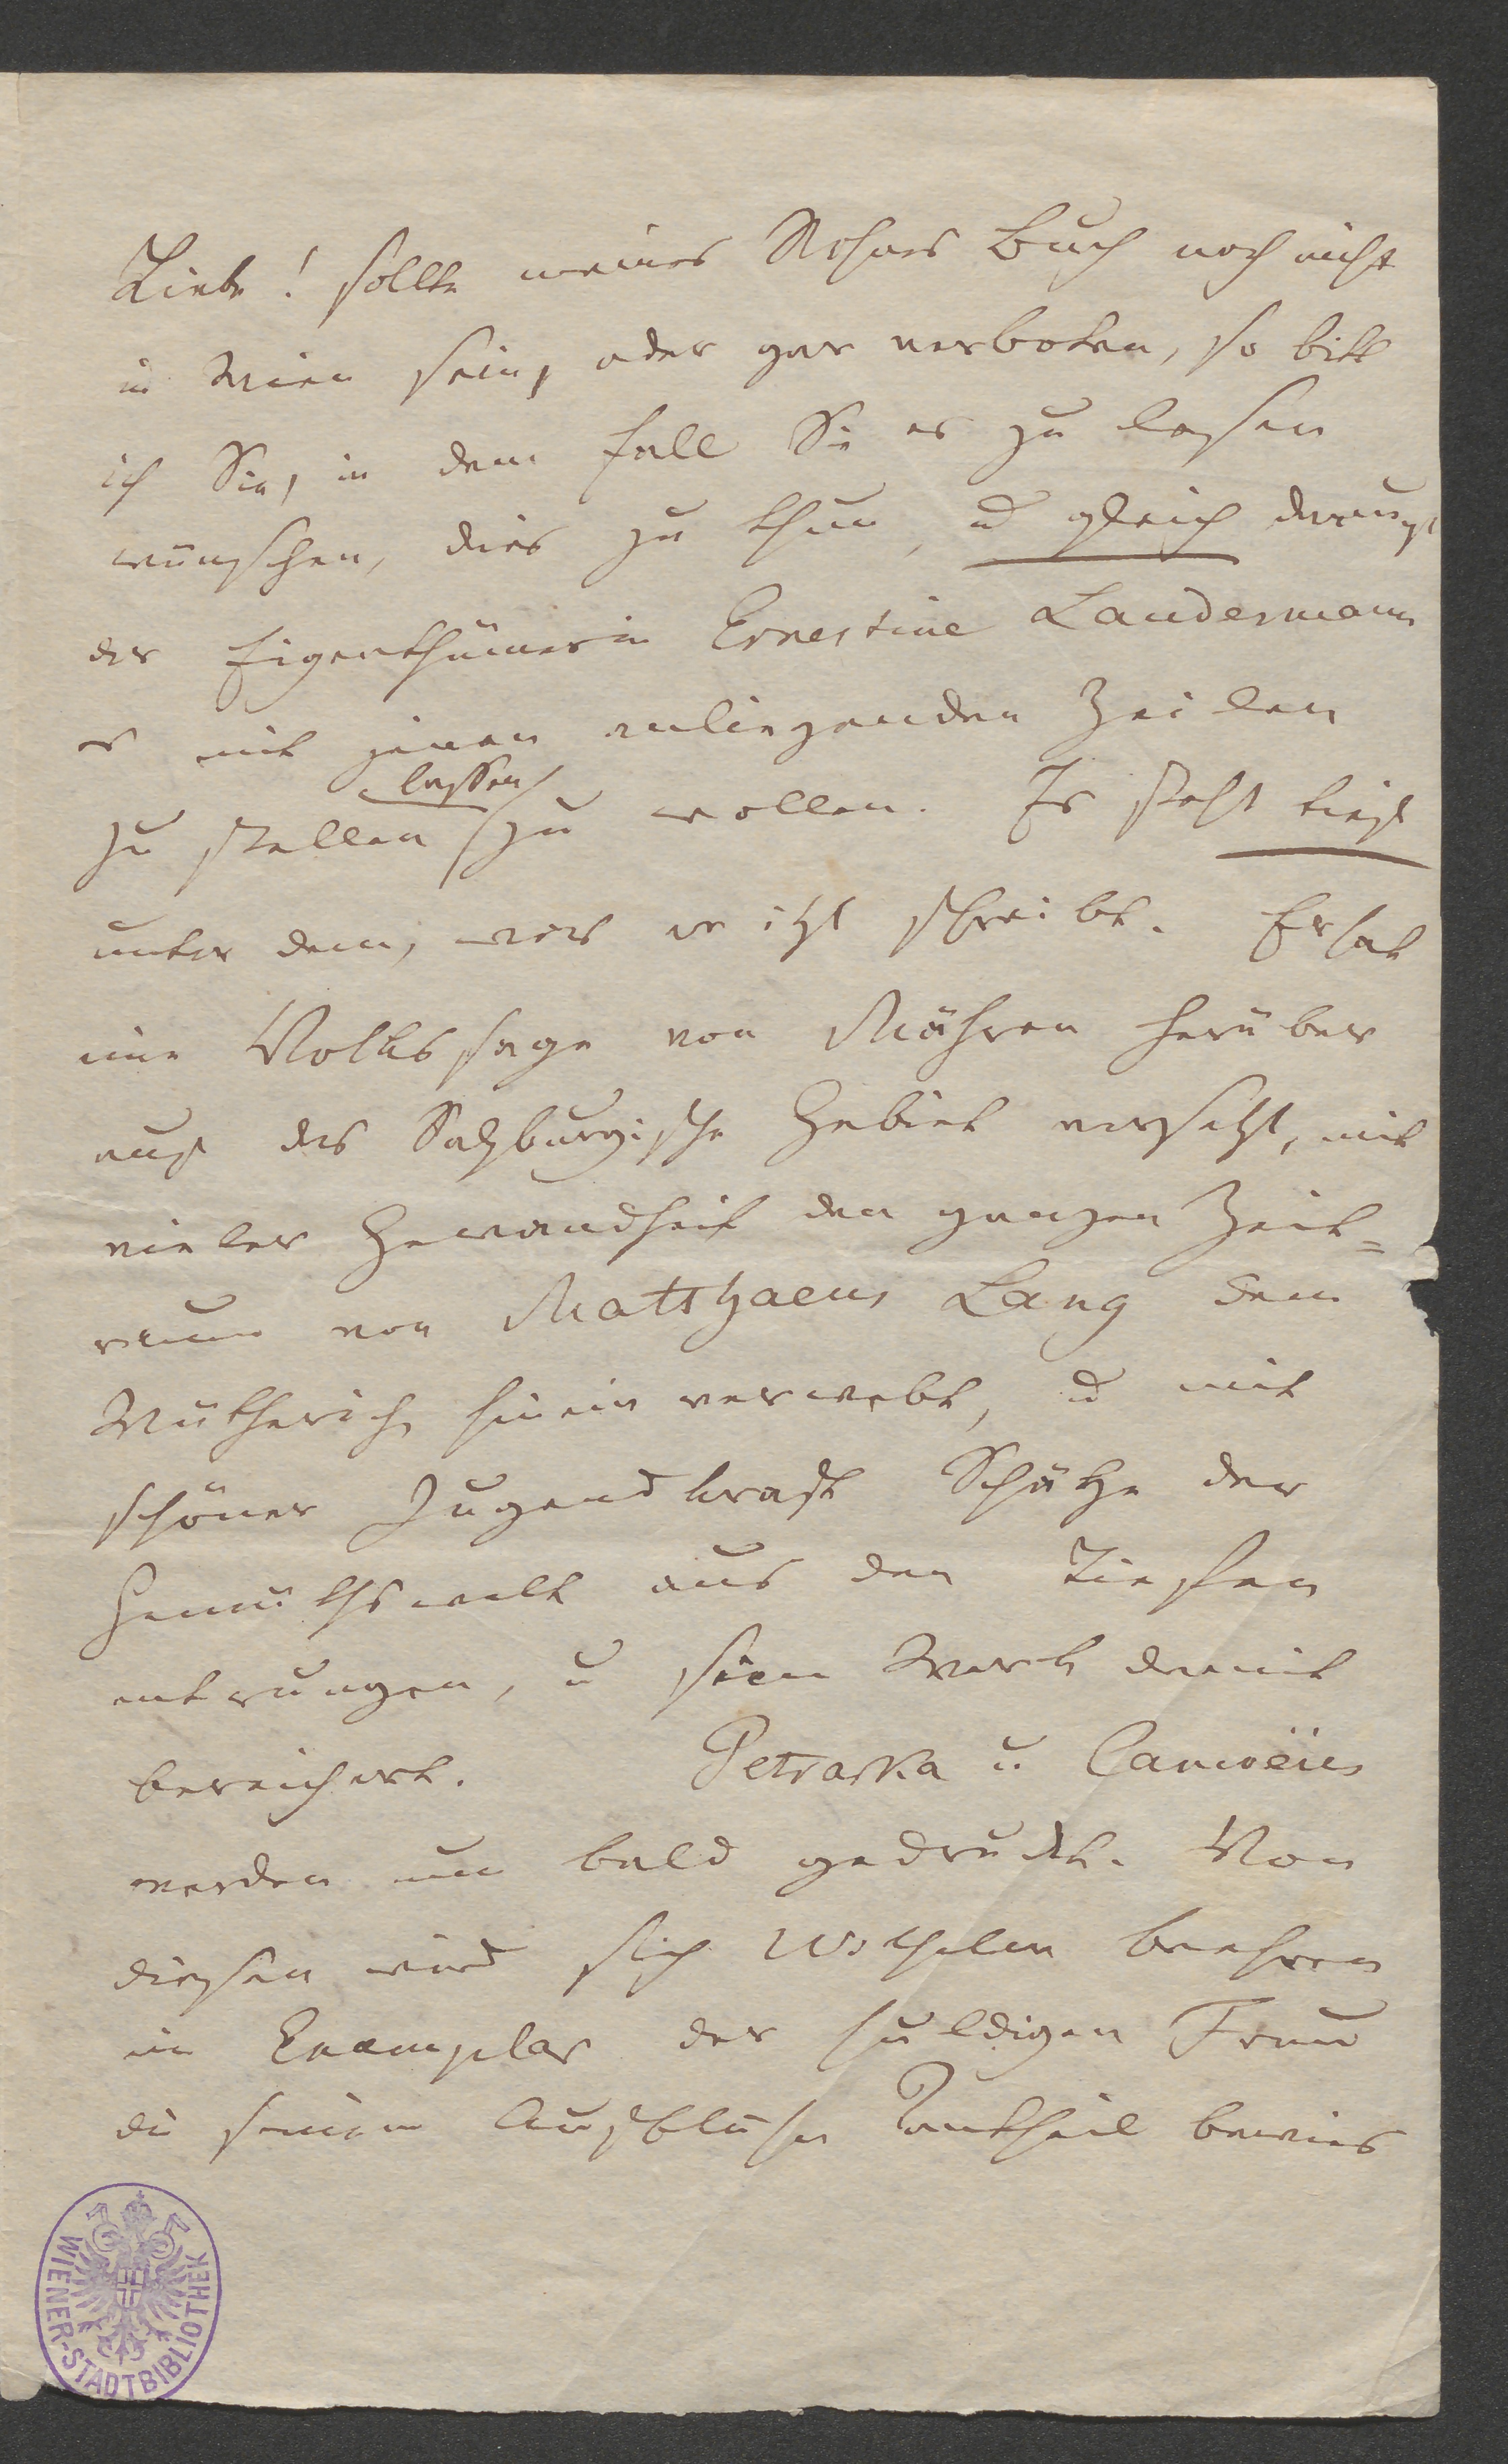 Liebe! sollte meines Sohnes Buch noch nicht
in Wien sein, oder gar verboten, so bitt
ich Sie, in dem Fall Sie es zu lesen
wünschen, dies zu thun, u gleich darauf
der Eigenthümerin Ernestine Laudermann
es mit jenen anliegenden Zeilen
lassen
zu stellen zu wollen. Es steht tief
unter dem, was er itzt schreibt. Er hat
eine Volkssage von Mähren herüber
auf das Salzburgische Gebiet versetzt, mit
vieler Gewandheit den ganzen Zeit=
raum von Matthaeus Lang dem
Wütherich hinein verwebt, u mit
schöner Jugendkraft Schätze der
Gemüthswelt aus den Tiefen
entrungen, u sein Werk damit
bereichert. Petrarka u. Camoëns
werden nun bald gedruckt. Von
diesen wird sich Wilhelm beehren
ein Exemplar der huldigen Frau
die seinem Aufblühen Antheil bewies
WIENER-STADTBIBLIOTHEK